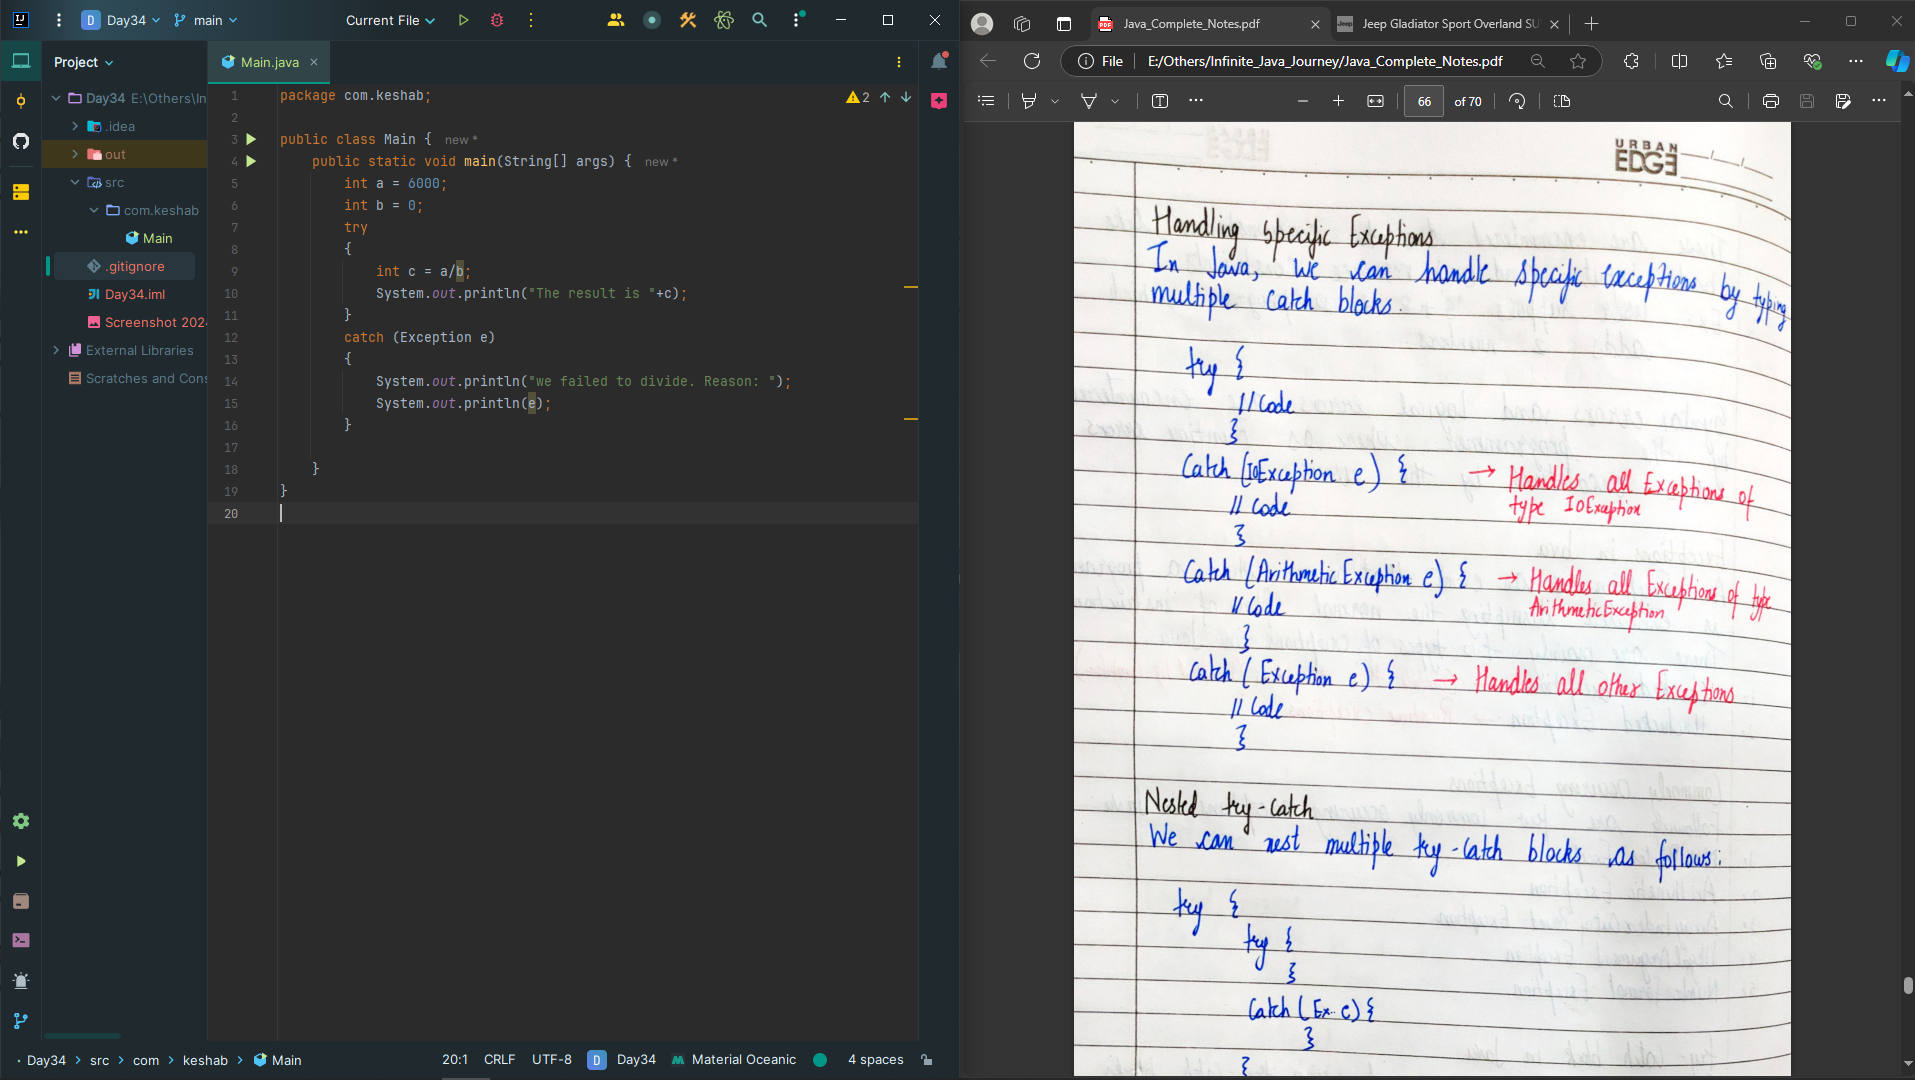 Day34
main
Current File
Project
Main.java
Day34 E:\Others\In
.idea
out
src
com.keshab
Main
.gitignore
Day34.iml
Screenshot 202
External Libraries
Scratches and Cons
1 package com.keshab;
2
3 public class Main { new *
4 public static void main(String[] args) { new *
5 int a = 6000;
6 int b = 0;
7 try
8 {
9 int c = a/b;
10 System.out.println("The result is "+c);
11 }
12 catch (Exception e)
13 {
14 System.out.println("we failed to divide. Reason: ");
15 System.out.println(e);
16 }
17
18 }
19 }
20
2
Day34 > src > com > keshab > Main
20:1 CRLF UTF-8 D Day34 Material Oceanic 4 spaces
Java_Complete_Notes.pdf
Jeep Gladiator Sport Overland SU
File E:/Others/Infinite_Java_Journey/Java_Complete_Notes.pdf
66 of 70
URBAN
EDGE
Handling Specific Exceptions
In Java, we can handle specific exceptions by typing
multiple catch blocks.
try {
// Code
}
Catch (IoException e) { → Handles all Exceptions of
type IoException
// Code
}
Catch (Arithmetic Exception e) { → Handles all Exceptions of type
ArithmeticException
// Code
}
Catch ( Exception e) { → Handles all other Exceptions
// Code
}
Nested try-catch
We can nest multiple try-catch blocks as follows:
try {
try {
}
Catch (Ex.. c) {
}
}